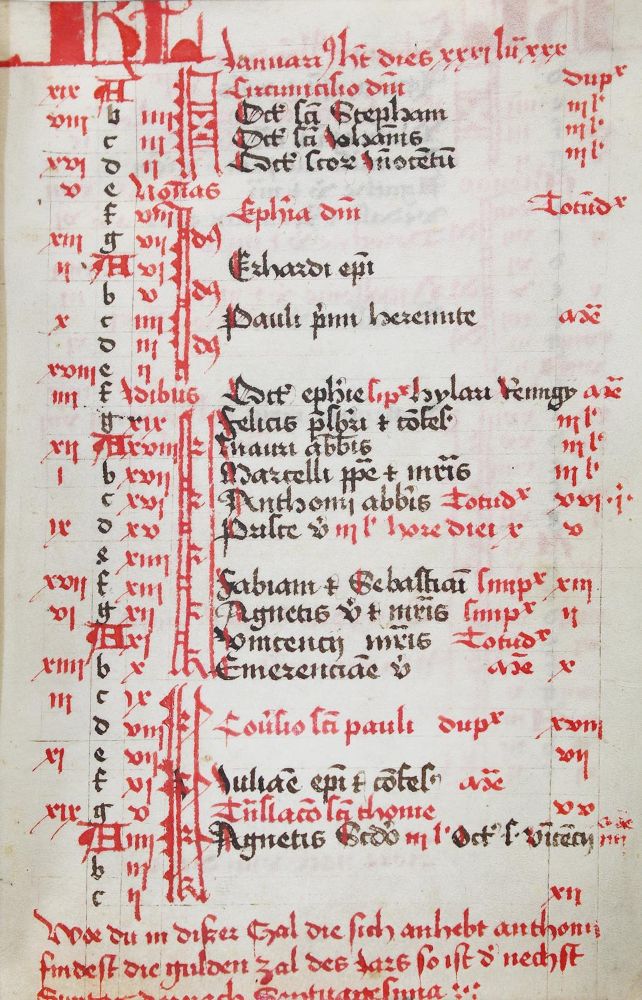 KL Januari⁹ ht dies xxxi lu xxx
xix A Circumcisio dni dupx
viii b iiii Oct sci Stephani iii l
c iii Oct sci Iohanis iii l
xvi d ii Oct scor Inocetu iii l
v e Nonas
f viii Ephia dni Totudx
xiii g vii
ii A vi Erhardi epi
b v
x c iiii Pauli pmi heremite
d iii
xviii e ii
iiii f Idibus Oct ephie hylari
g xix Felicis pbri t cofes iii l
xii A xviii Mauri abbis iii l
i b xvii Marcelli ppe t mris iii l
c xvi Anthonii abbis Totudx xvi
ix d xv Prisce v iii l hore diei x v
e xiiii
xvii f xiii Fabiani t Sebastiani simpx xiii
vi g xii Agnetis v t mris simpx ii
A xi Vincentii mris Totudx
xiiii b x Emerenciae v x
iii c ix
d viii Covsio sci pauli dupx xviii
xi e vii vii
f vi Iuliae epi t cofes
xix g v Tnslaco sci thome xv
A iiii Agnetis Scdo iii l Oct s vicecii iiii
b iii
c ii xii
Wo du in diszer Zal die sich anhebt anthonii
findest die gulden zal des Jars so ist d nechst
Suntag darnach Septuagesima